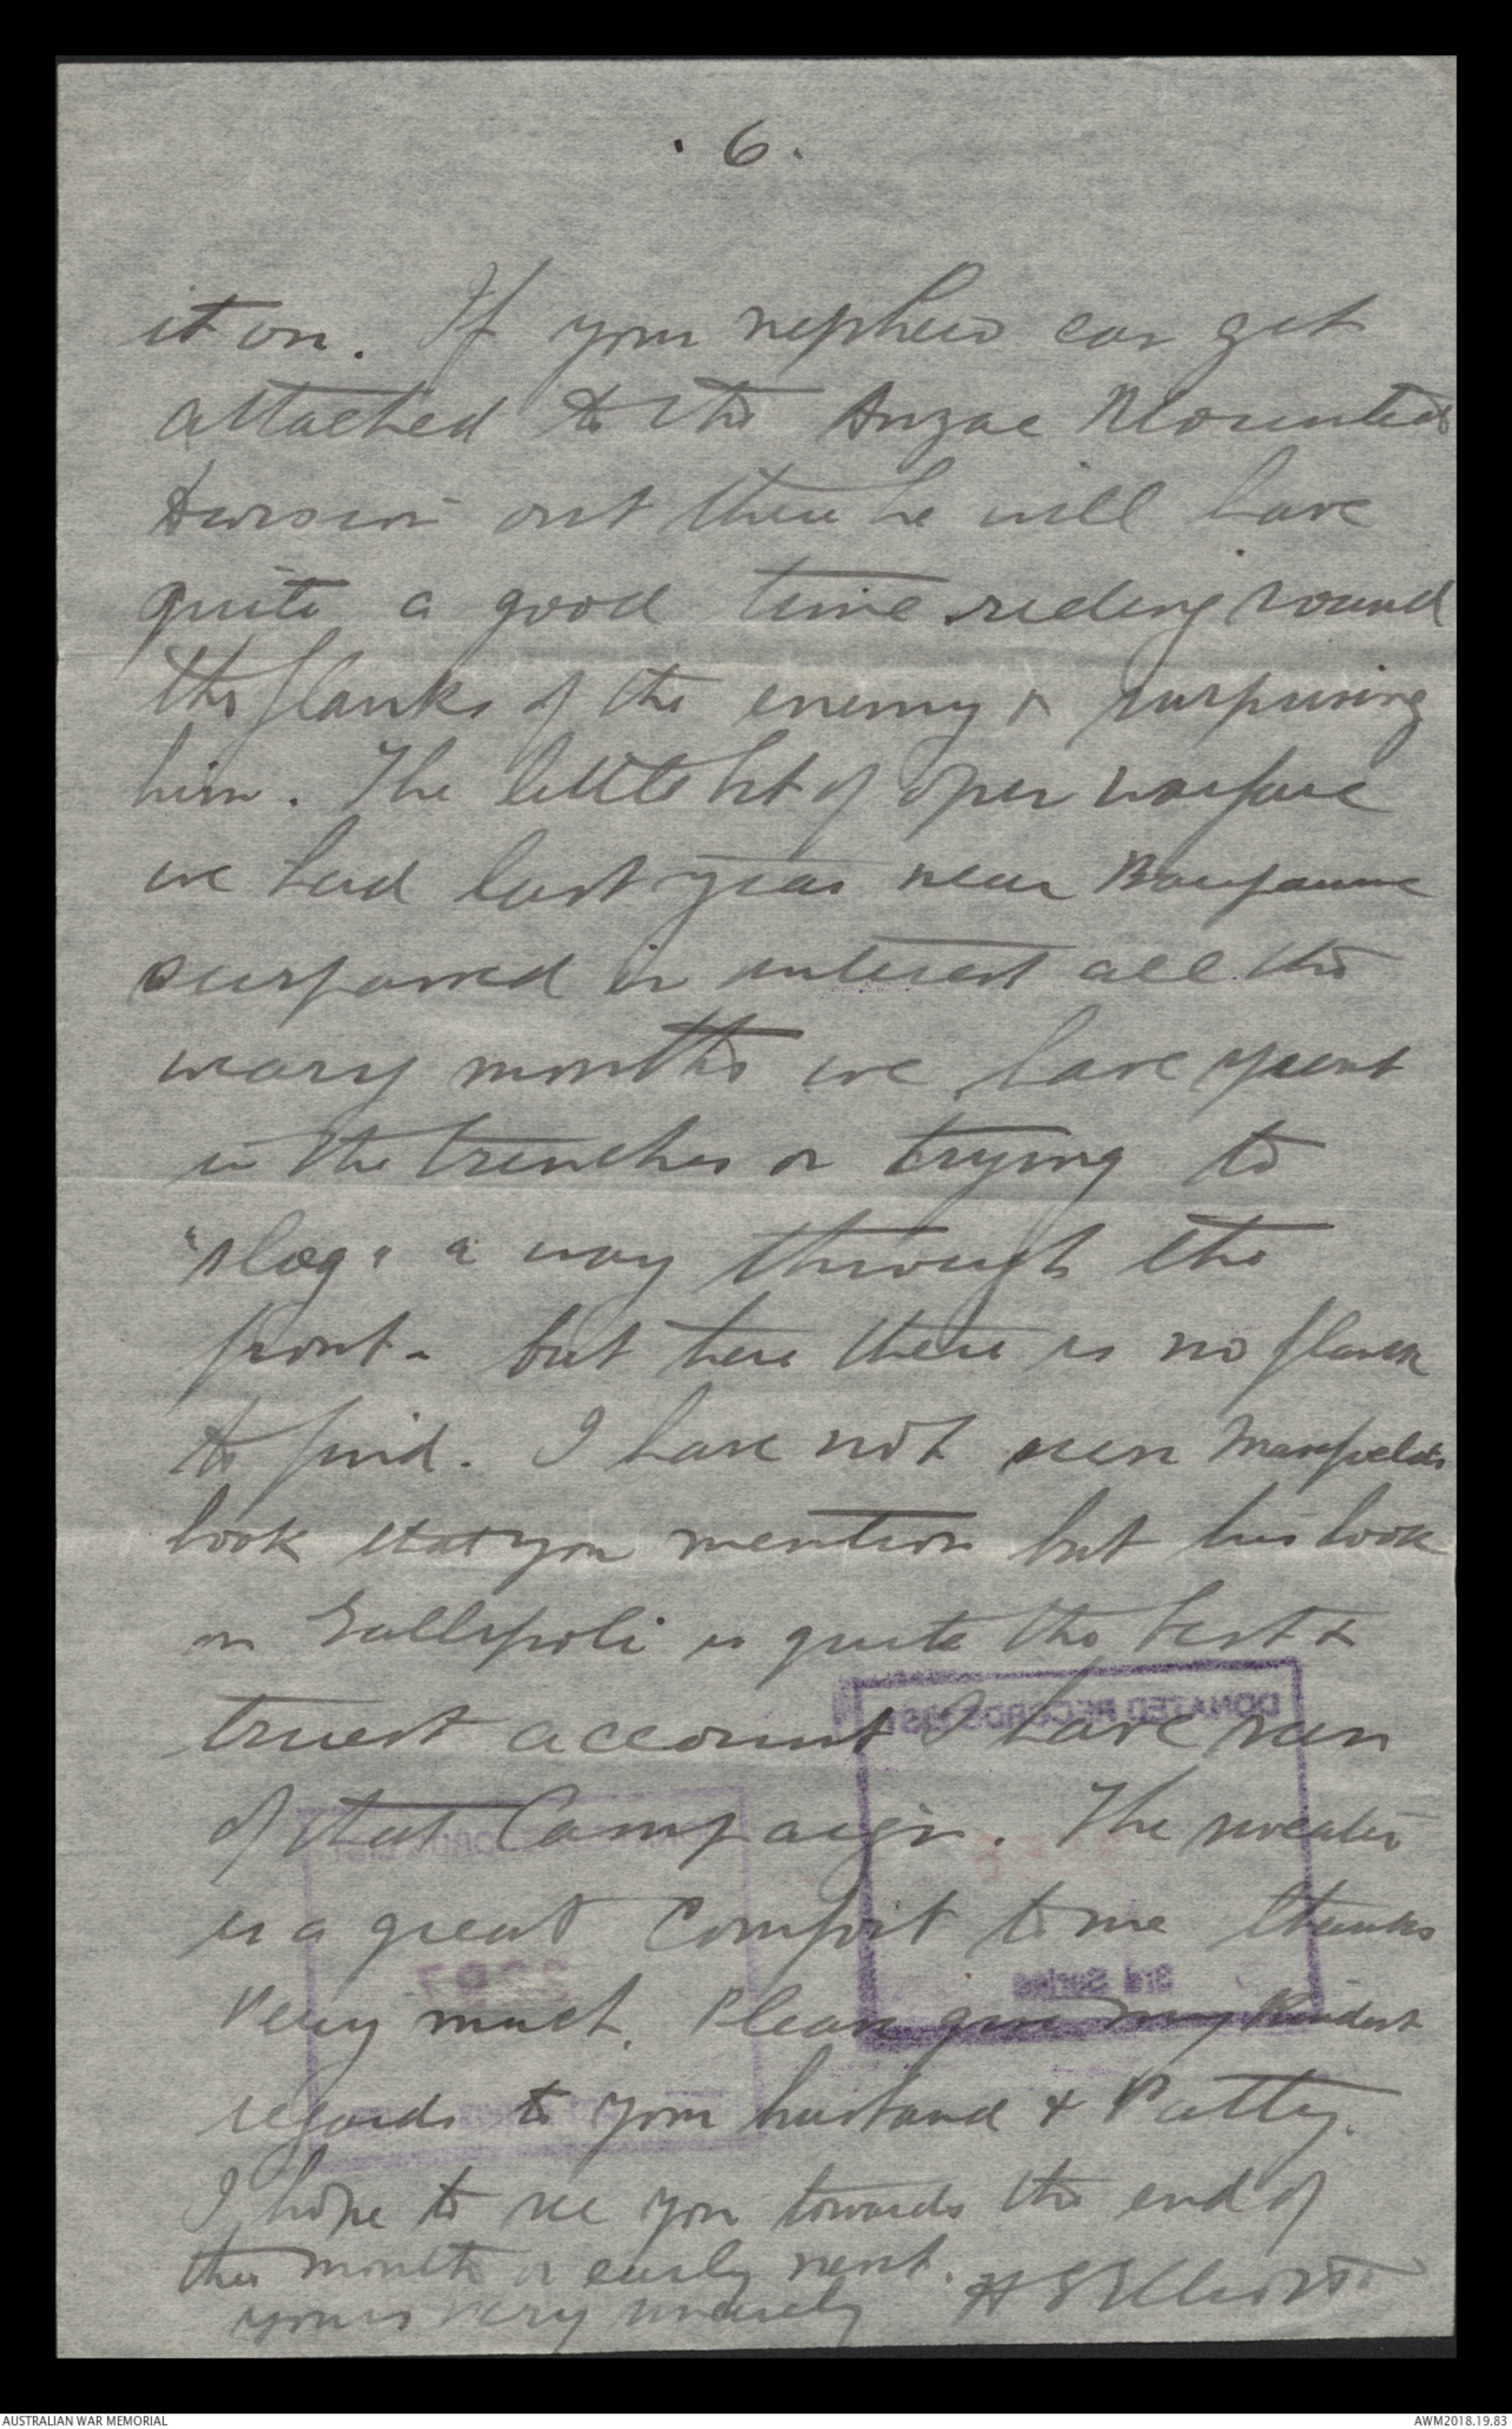 . 6 .
it on. If your nephew can get
attached to the Anzac Mounted
Division out there he will have
quite a good time riding round
the flanks of the enemy & surprising
him. The little bit of open warfare
we had last year near Bapaume
surpassed in interest all the
weary months we have spent
in the trenches or trying to
"slog" a way through the
front - but here there is no flank
to find. I have not seen Masefields
book that you mention but his book
on Gallipoli is quite the best &
truest account I have seen
of that Campaign. The sweater
is a great comfort to me thanks
very much. Please give my kindest
regards to your husband & Patty.
I hope to see you towards the end of
this month or early next.
yours very sincerely H E Elliott
DONATED RECORDS LIST
3rd Series
AUSTRALIAN WAR MEMORIAL
AWM2018.19.83